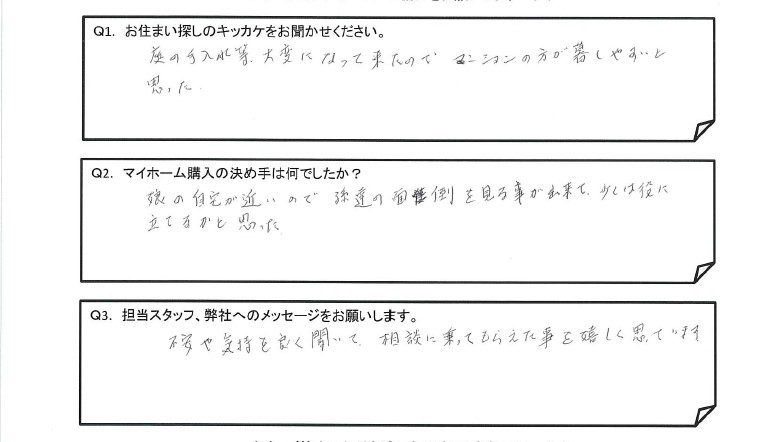 Q1. お住まい探しのキッカケをお聞かせください。
庭の手入れ等、大変になって来たので マンションの方が暮しやすいと
思った.
Q2. マイホーム購入の決め手は何でしたか？
娘の自宅が近いので 孫達の面倒を見る事が出来て、少しは役に
立てるかと思った
Q3. 担当スタッフ、弊社へのメッセージをお願いします。
不安や気持を良く聞いて、相談に乗ってもらえた事を嬉しく思っています